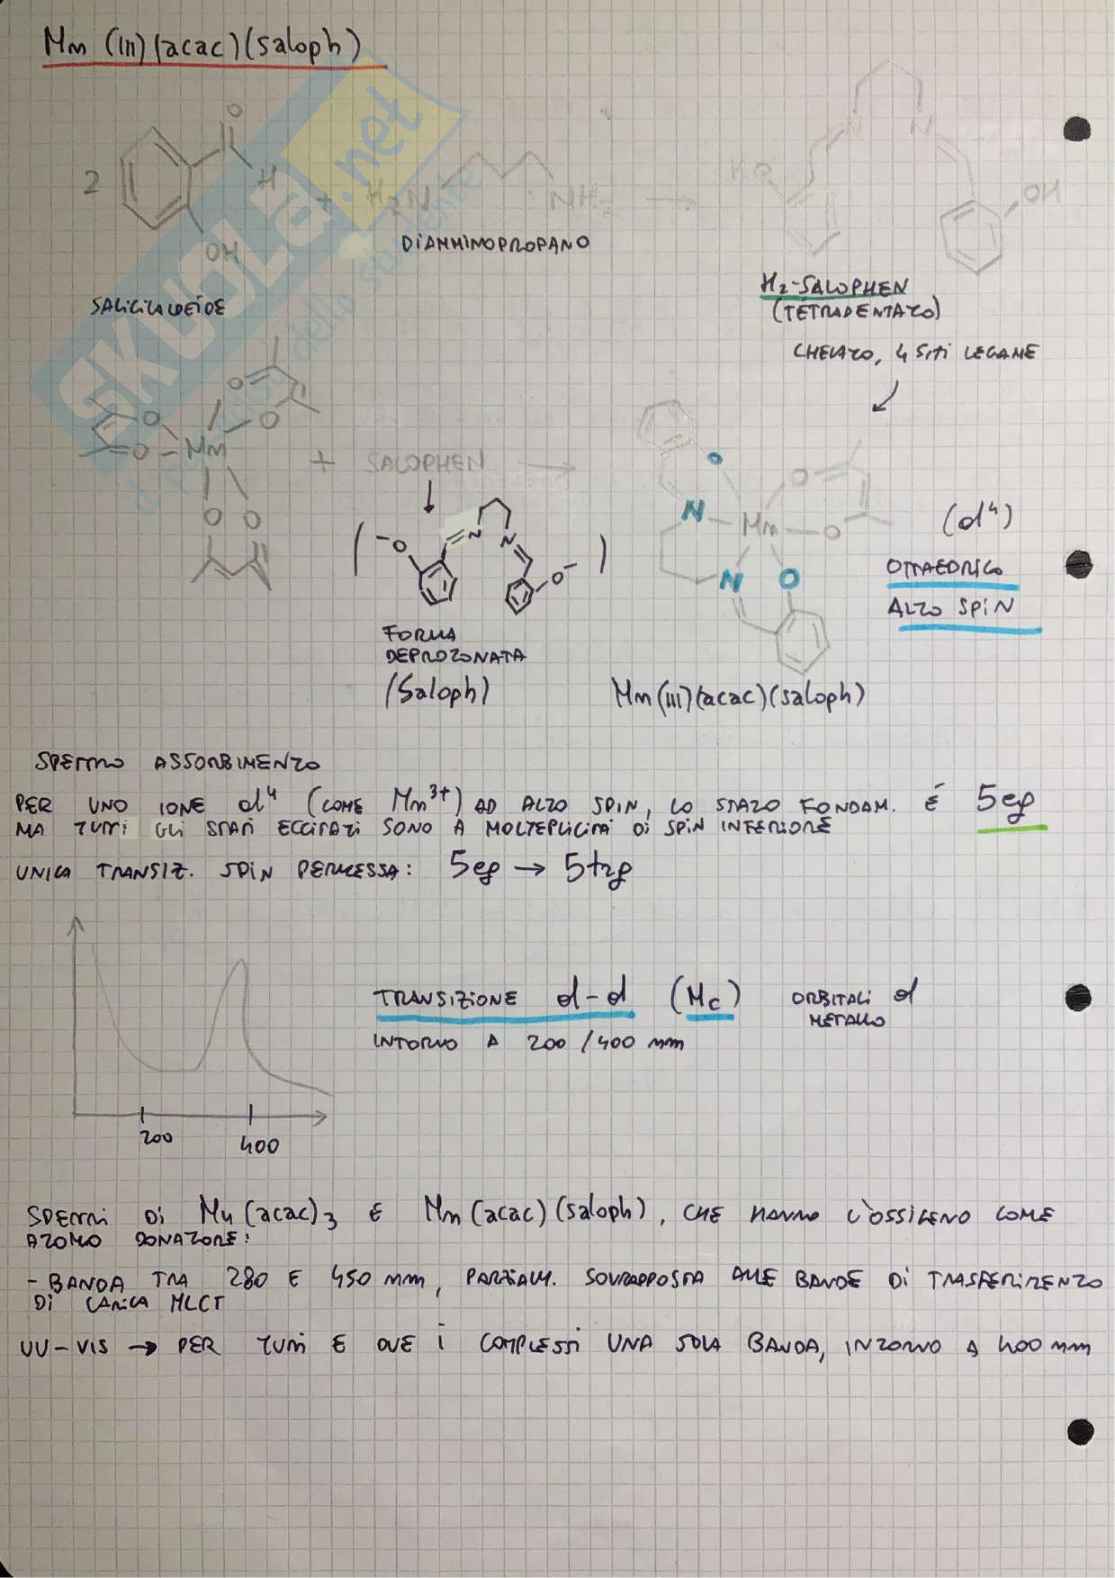 Mn (III)(acac)(saloph)
2
O
H
OH
+
H₂N
NH₂
DIAMMINOPROPANO
SALICILALDEIDE
N
N
HO
OH
H₂-SALOPHEN
(TETRADENTATO)
CHELATO, 4 SITI LEGAME
O
O
O
O
Mn
O
O
+ SALOPHEN
(
⁻O
N
N
O⁻
)
FORMA
DEPROTONATA
(Saloph)
O
O
N
Mn
O
N
O
(d⁴)
OTTAEDRICO
ALTO SPIN
Mn(III)(acac)(saloph)
SPETTRO ASSORBIMENTO
PER UNO IONE d⁴ (COME Mn³⁺) AD ALTO SPIN, LO STATO FONDAM. É 5eg
MA TUTTI GLI STATI ECCITATI SONO A MOLTEPLICITÀ DI SPIN INFERIORE
UNICA TRANSIZ. SPIN PERMESSA: 5eg → 5t2g
TRANSIZIONE d-d (MC) ORBITALI d
METALLO
INTORNO A 200/400 nm
200
400
SPETTRI DI Mn(acac)₃ E Mn(acac)(saloph), CHE HANNO L'OSSIGENO COME
ATOMO DONATORE:
- BANDA TRA 280 E 450 nm, PARZIALM. SOVRAPPOSTA ALLE BANDE DI TRASFERIMENTO
DI CARICA MLCT
UV-VIS → PER TUTTI E DUE I COMPLESSI UNA SOLA BANDA, INTORNO A 400 nm
SKUOLA.net